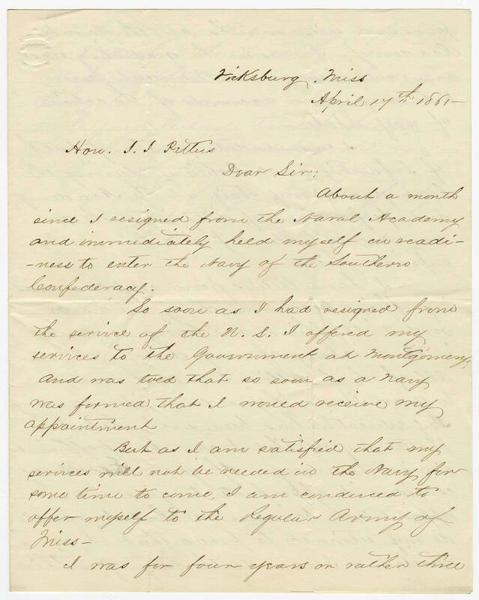 Vicksburg Miss
April 17th 1861-
Hon. J. J Pettus
Dear Sir:
About a month
since I resigned from the Naval Academy
and immediately held myself in readi-
-ness to enter the Navy of the Southern
Confederacy.
So soon as I had resigned from
the service of the U. S. I offered my
services to the Government at Montgomery,
and was told that so soon as a navy
was formed that I would receive my
appointment
But as I am satisfied that my
services will not be needed in the Navy for
some time to come, I am induced to
offer myself to the Regular Army of
Miss-
I was for four years or rather three